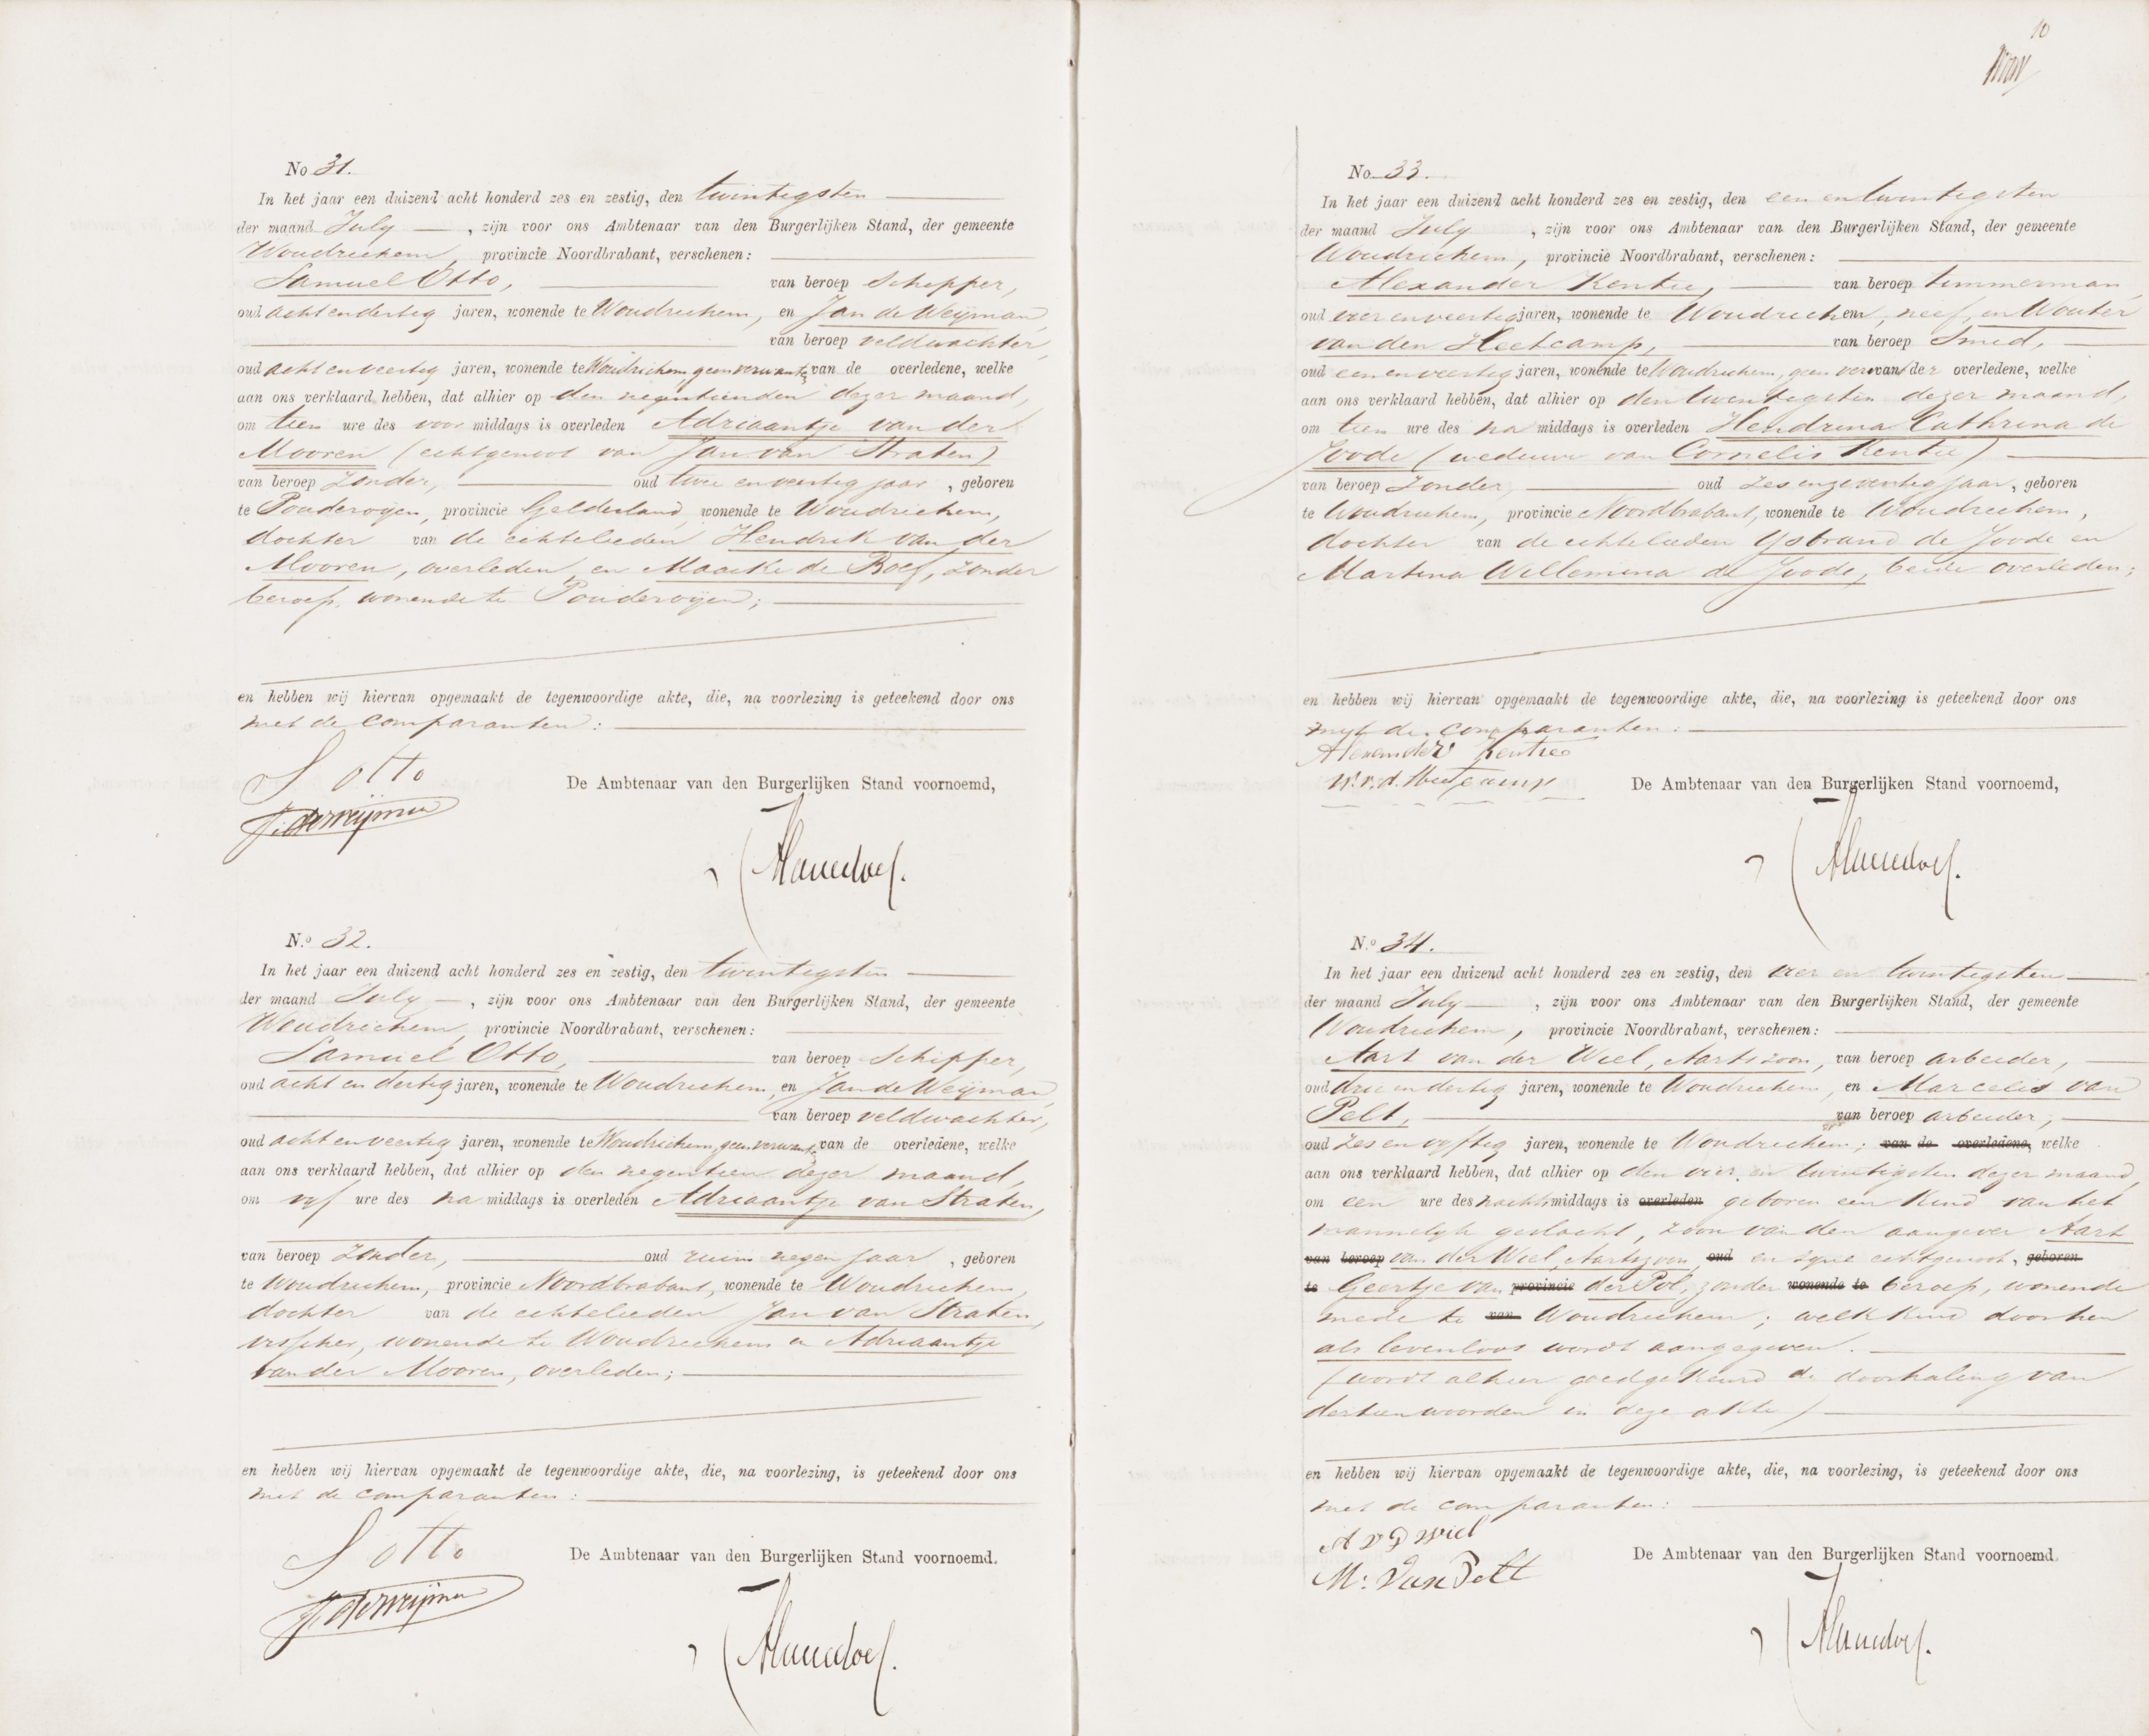 No 31.
In het jaar een duizend acht honderd zes en zestig, den twintigsten
der maand July, zijn voor ons Ambtenaar van den Burgerlijken Stand, der gemeente
Woudrichem, provincie Noordbrabant, verschenen:
Samuel Otto, van beroep Schipper,
oud acht en dertig jaren, wonende te Woudrichem, en Jan de Weijman,
van beroep veldwachter,
oud acht en veertig jaren, wonende te Woudrichem, geen verwanten van de overledene, welke
aan ons verklaard hebben, dat alhier op den negentienden dezer maand,
om tien ure des voor middags is overleden Adriaantje van der
Mooren (echtgenoot van Jan van Straten)
van beroep Zonder, oud twee en veertig jaar, geboren
te Pouderoijen, provincie Gelderland, wonende te Woudrichem,
dochter van de echtelieden Hendrik van der
Mooren, overleden, en Maaike de Roef, zonder
beroep, wonende te Pouderoijen;
en hebben wij hiervan opgemaakt de tegenwoordige akte, die, na voorlezing is geteekend door ons
met de comparanten:
S Otto
De Ambtenaar van den Burgerlijken Stand voornoemd,
J. de Weijman
N.o 32.
In het jaar een duizend acht honderd zes en zestig, den twintigsten
der maand July, zijn voor ons Ambtenaar van den Burgerlijken Stand, der gemeente
Woudrichem, provincie Noordbrabant, verschenen:
Samuel Otto, van beroep Schipper,
oud acht en dertig jaren, wonende te Woudrichem, en Jan de Weijman,
van beroep veldwachter,
oud acht en veertig jaren, wonende te Woudrichem, geen verwanten van de overledene, welke
aan ons verklaard hebben, dat alhier op den negentien dezer maand,
om vyf ure des na middags is overleden Adriaantje van Straten,
van beroep Zonder, oud ruim negen jaar, geboren
te Woudrichem, provincie Noordbrabant, wonende te Woudrichem,
dochter van de echtelieden Jan van Straten,
visscher, wonende te Woudrichem en Adriaantje
van der Mooren, overleden;
en hebben wij hiervan opgemaakt de tegenwoordige akte, die, na voorlezing, is geteekend door ons
met de comparanten:
S Otto
De Ambtenaar van den Burgerlijken Stand voornoemd.
J. de Weijman
10
No 33.
In het jaar een duizend acht honderd zes en zestig, den een en twintigsten
der maand July, zijn voor ons Ambtenaar van den Burgerlijken Stand, der gemeente
Woudrichem, provincie Noordbrabant, verschenen:
Alexander Kentie, van beroep timmerman,
oud vier en veertig jaren, wonende te Woudrichem, neef, en Wouter
van den Heetcamp, van beroep Smid,
oud een en veertig jaren, wonende te Woudrichem, geen verwant der overledene, welke
aan ons verklaard hebben, dat alhier op den twintigsten dezer maand,
om tien ure des na middags is overleden Hendrina Cathrina de
Joode (weduwe van Cornelis Kentie)
van beroep Zonder, oud zes en zeventig jaar, geboren
te Woudrichem, provincie Noordbrabant, wonende te Woudrichem,
dochter van de echtelieden Ysbrand de Joode en
Martina Willemina de Joode, beide overleden;
en hebben wij hiervan opgemaakt de tegenwoordige akte, die, na voorlezing is geteekend door ons
met de comparanten:
Alexander Kentie
W. v. d. Heetcamp
De Ambtenaar van den Burgerlijken Stand voornoemd,
N.o 34.
In het jaar een duizend acht honderd zes en zestig, den vier en twintigsten
der maand July, zijn voor ons Ambtenaar van den Burgerlijken Stand, der gemeente
Woudrichem, provincie Noordbrabant, verschenen:
Aart van der Wiel, Aartszoon, van beroep arbeider,
oud drie en dertig jaren, wonende te Woudrichem, en Marcelis van
Pelt, van beroep arbeider,
oud zes en vyftig jaren, wonende te Woudrichem; van de overledene, welke
aan ons verklaard hebben, dat alhier op den vier en twintigsten dezer maand,
om een ure des nachts middags is overleden geboren een kind van het
mannelyk geslacht, zoon van den aangever Aart
van beroep van der Wiel, Aartszoon, oud en zyne echtgenoot, geboren
te Geertje van provincie der Pol, zonder wonende te beroep, wonende
mede te van Woudrichem; welk kind door hen
als levenloos wordt aangegeven.
(wordt alhier goedgekeurd de doorhaling van
dertien woorden in deze akte)
en hebben wij hiervan opgemaakt de tegenwoordige akte, die, na voorlezing, is geteekend door ons
met de comparanten:
A v D Wiel
De Ambtenaar van den Burgerlijken Stand voornoemd.
M: Van Pelt